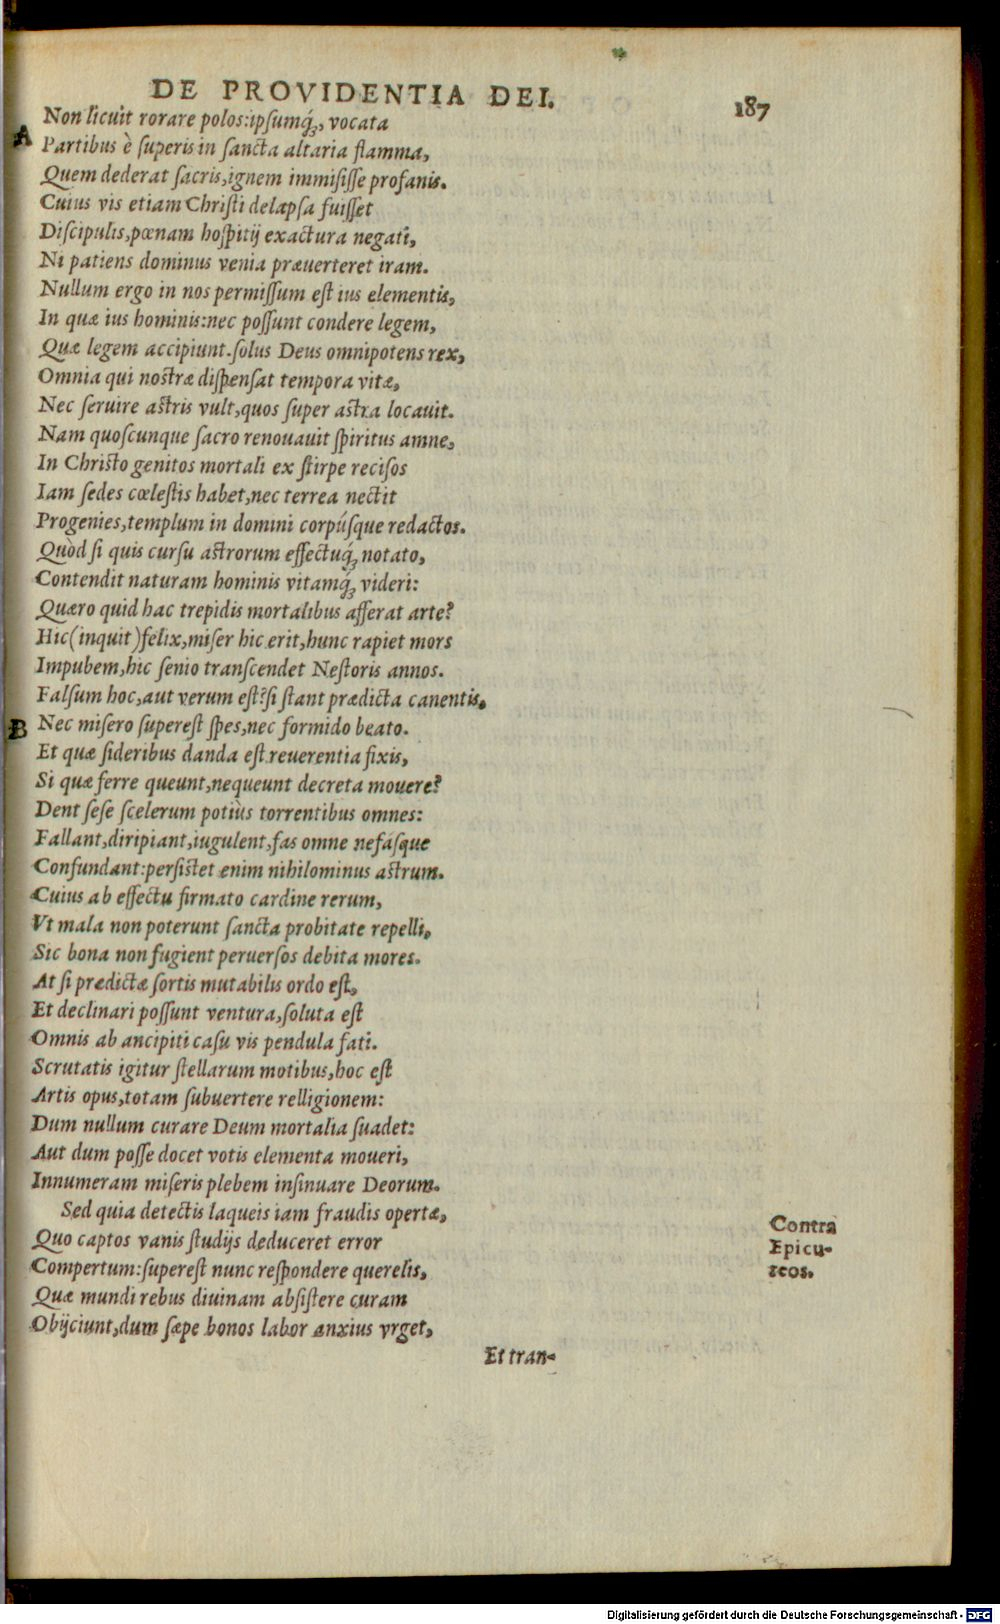 DE PROVIDENTIA DEI. 187
Non licuit rorare polos:ipsumq́;, vocata
A
Partibus è superis in sancta altaria flamma,
Quem dederat sacris,ignem immisisse profanis.
Cuius vis etiam Christi delapsa fuisset
Discipulis,pœnam hospitij exactura negati,
Ni patiens dominus venia præuerteret iram.
Nullum ergo in nos permissum est ius elementis,
In quæ ius hominis:nec possunt condere legem,
Quæ legem accipiunt.solus Deus omnipotens rex,
Omnia qui nostræ dispensat tempora vitæ,
Nec seruire astris vult,quos super astra locauit.
Nam quoscunque sacro renouauit spiritus amne,
In Christo genitos mortali ex stirpe recisos
Iam sedes cœlestis habet,nec terrea nectit
Progenies,templum in domini corpúsque redactos.
Quòd si quis cursu astrorum effectuq́; notato,
Contendit naturam hominis vitamq́; videri:
Quæro quid hac trepidis mortalibus afferat arte?
Hic(inquit)felix,miser hic erit,hunc rapiet mors
Impubem,hic senio transcendet Nestoris annos.
Falsum hoc,aut verum est?si stant prædicta canentis,
B
Nec misero superest spes,nec formido beato.
Et quæ sideribus danda est reuerentia fixis,
Si quæ ferre queunt,nequeunt decreta mouere?
Dent sese scelerum potiùs torrentibus omnes:
Fallant,diripiant,iugulent,fas omne nefásque
Confundant:persistet enim nihilominus astrum.
Cuius ab effectu firmato cardine rerum,
Vt mala non poterunt sancta probitate repelli,
Sic bona non fugient peruersos debita mores.
At si prædictæ sortis mutabilis ordo est,
Et declinari possunt ventura,soluta est
Omnis ab ancipiti casu vis pendula fati.
Scrutatis igitur stellarum motibus,hoc est
Artis opus,totam subuertere relligionem:
Dum nullum curare Deum mortalia suadet:
Aut dum posse docet votis elementa moueri,
Innumeram miseris plebem insinuare Deorum.
Sed quia detectis laqueis iam fraudis opertæ,
Quo captos vanis studijs deduceret error
Compertum:superest nunc respondere querelis,
Quæ mundi rebus diuinam absistere curam
Obijciunt,dum sæpe bonos labor anxius vrget,
Contra
Epicu-
reos.
Et tran-
Digitalisierung gefördert durch die Deutsche Forschungsgemeinschaft - DFG